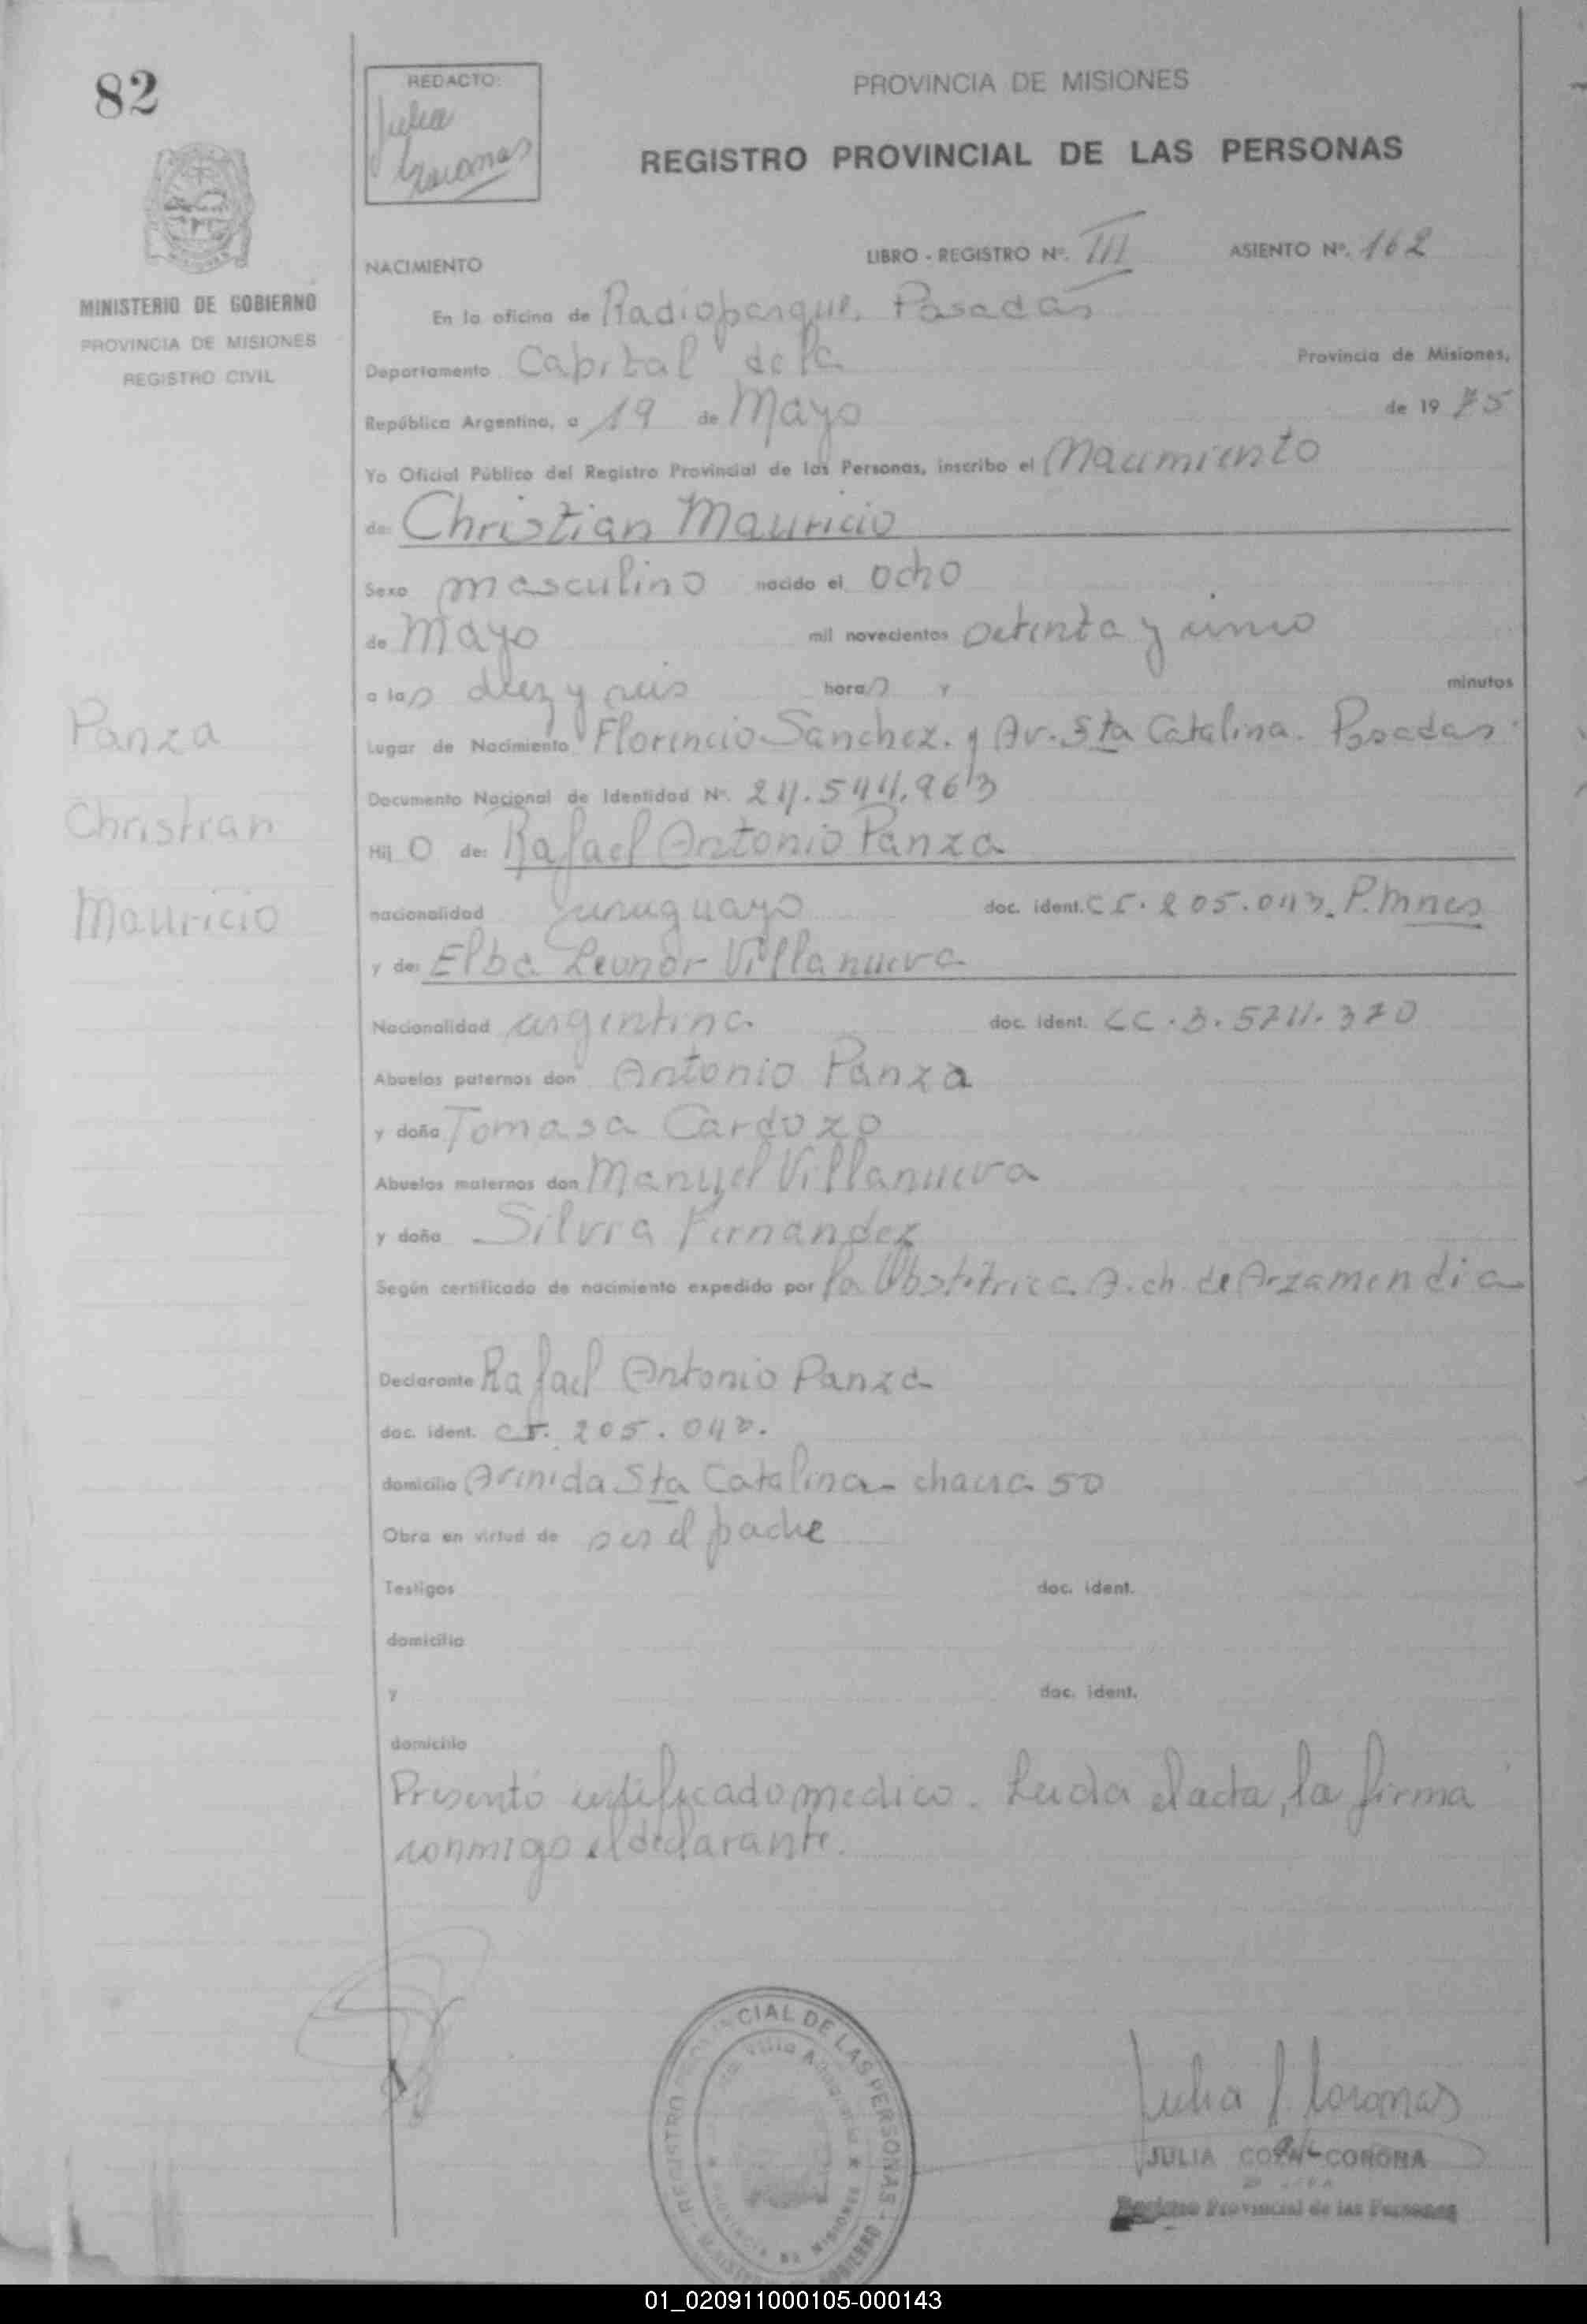 82
REDACTO:
Julia
Coronas
PROVINCIA DE MISIONES
REGISTRO PROVINCIAL DE LAS PERSONAS
MINISTERIO DE GOBIERNO
PROVINCIA DE MISIONES
REGISTRO CIVIL
NACIMIENTO LIBRO - REGISTRO Nº. III ASIENTO Nº. 162
En la oficina de Radioparque, Posadas
Departamento Capital de la Provincia de Misiones,
República Argentina, a 19 de Mayo de 19 75
Yo Oficial Público del Registro Provincial de las Personas, inscribo el Nacimiento
de: Christian Mauricio
Sexo masculino nacido el ocho
de Mayo mil novecientos setenta y cinco
a las diez y seis horas y minutos
Lugar de Nacimiento Florencio Sanchez. y Av. Sta Catalina. Posadas.
Documento Nacional de Identidad Nº. 24.544.963
Hij o de: Rafael Antonio Panza
nacionalidad uruguayo doc. ident. C I. 205.043. P. Mnes
y de: Elba Leonor Villanueva
Nacionalidad argentina doc. ident. LC. 3.574.370
Abuelos paternos don Antonio Panza
y doña Tomasa Cardozo
Abuelos maternos don Manuel Villanueva
y doña Silvia Fernandez
Según certificado de nacimiento expedido por la Obstetrica A. ch. de Arzamendia
Panza
Christian
Mauricio
Declarante Rafael Antonio Panza
doc. ident. CI. 205.043.
domicilio Avenida Sta Catalina - chacra 50
Obra en virtud de ser el padre
Testigos doc. ident.
domicilio
y doc. ident.
domicilio
Presentó certificado medico. Leida el acta, la firma
conmigo el declarante.
REGISTRO PROVINCIAL DE LAS PERSONAS
PROVINCIA DE MISIONES
Julia Coronas
JULIA CORONA
Registro Provincial de las Personas
01_020911000105-000143